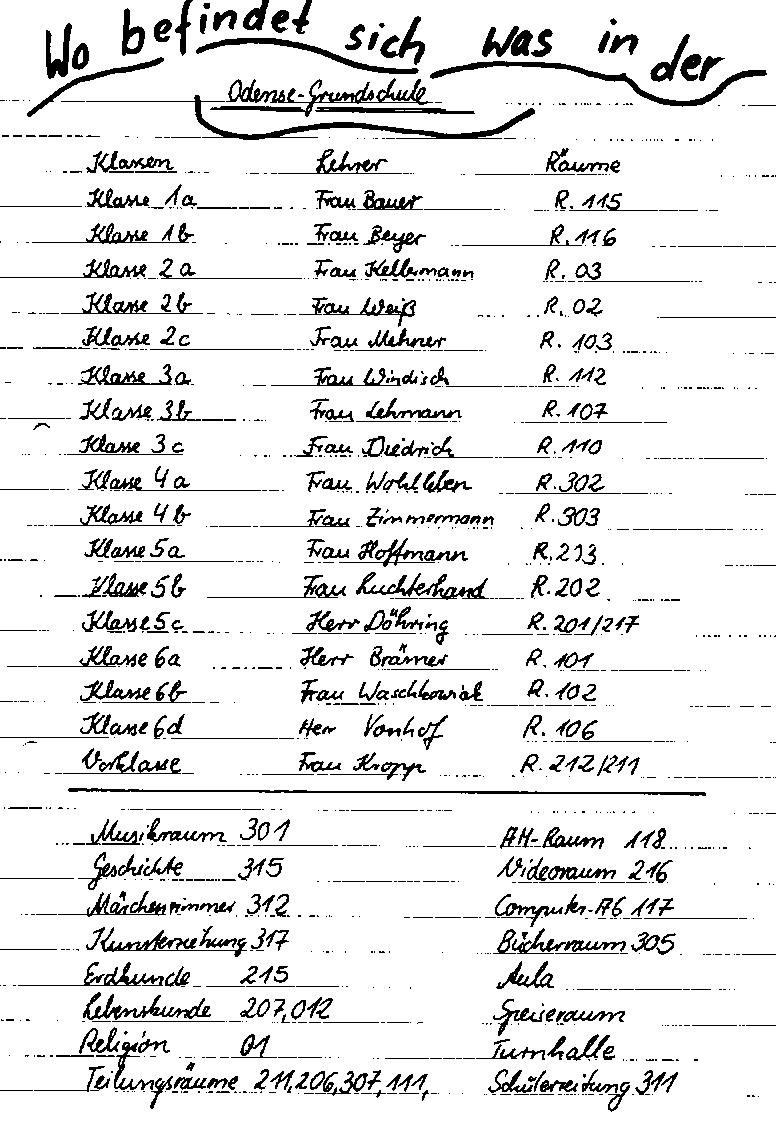 Wo befindet sich was in der
Odense-Grundschule
Klassen Lehrer Räume
Klasse 1a Frau Bauer R. 115
Klasse 1b Frau Beyer R. 116
Klasse 2a Frau Kellermann R. 03
Klasse 2b Frau Weiß R. 02
Klasse 2c Frau Mehner R. 103
Klasse 3a Frau Windisch R. 112
Klasse 3b Frau Lehmann R. 107
Klasse 3c Frau Diedrich R. 110
Klasse 4a Frau Wohlleben R. 302
Klasse 4b Frau Zimmermann R. 303
Klasse 5a Frau Hoffmann R. 213
Klasse 5b Frau Luchterhand R. 202
Klasse 5c Herr Döhring R. 201/217
Klasse 6a Herr Brämer R. 101
Klasse 6b Frau Waschkowiak R. 102
Klasse 6d Herr Vonhof R. 106
Vorklasse Frau Kropp R. 212/211
Musikraum 301 AH-Raum 118
Geschichte 315 Videoraum 216
Märchenzimmer 312 Computer-AG 117
Kunsterziehung 317 Bücherraum 305
Erdkunde 215 Aula
Lebenskunde 207, 012 Speiseraum
Religion 01 Turnhalle
Teilungsräume 211, 206, 307, 111, Schülerzeitung 311